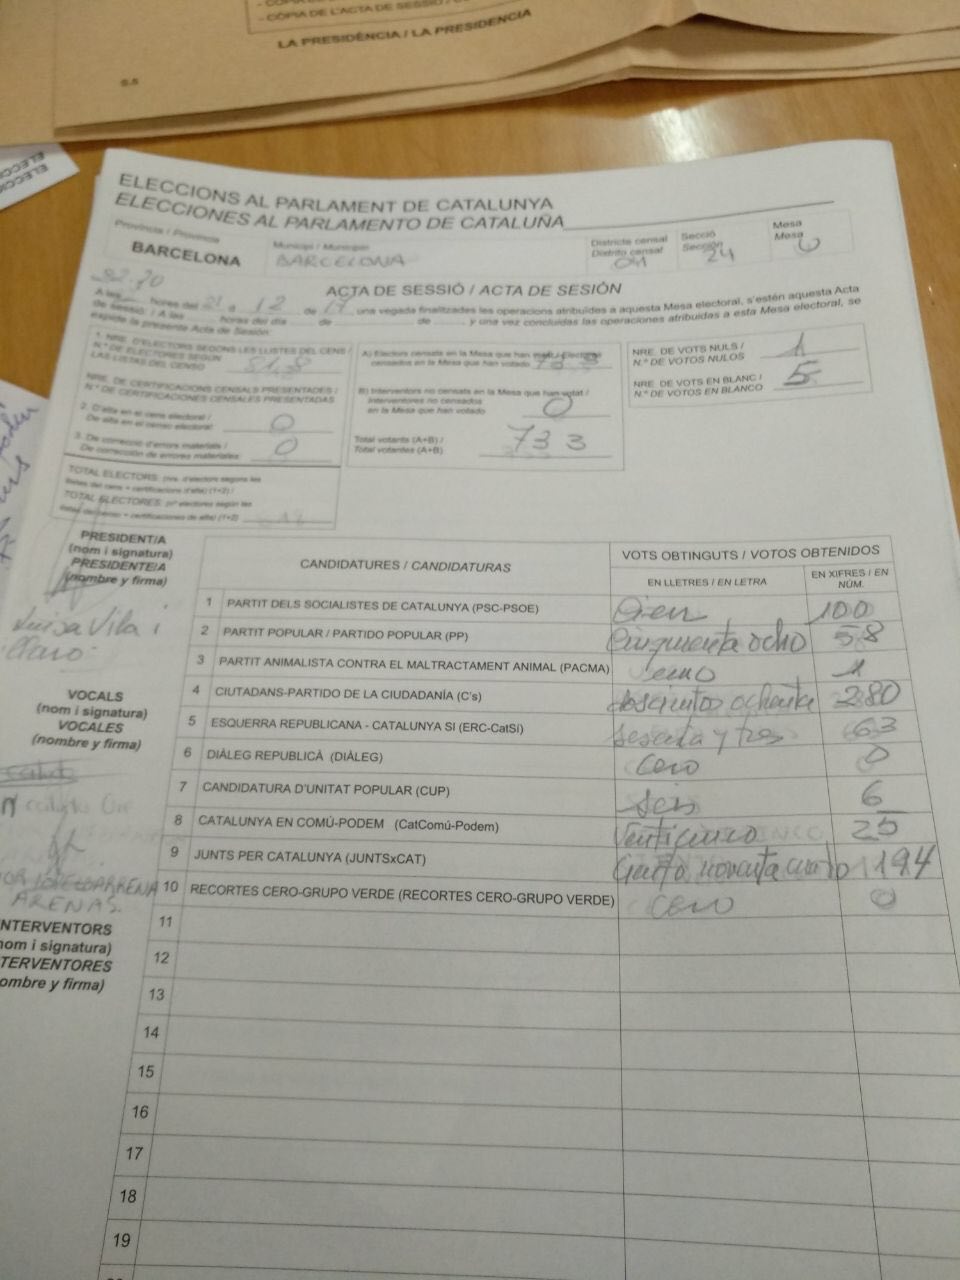 - CÒPIA DE L'ACTA DE SESSIÓ /
LA PRESIDÈNCIA / LA PRESIDENCIA
ELECCIONS AL PARLAMENT DE CATALUNYA
ELECCIONES AL PARLAMENTO DE CATALUÑA
Província / Provincia
BARCELONA
Municipi / Municipio
BARCELONA
Districte censal
Distrito censal
04
Secció
Sección
24
Mesa
Mesa
U
ACTA DE SESSIÓ / ACTA DE SESIÓN
A les hores del 21 d 12 de 17, una vegada finalitzades les operacions atribuïdes a aquesta Mesa electoral, s'estén aquesta Acta
de sessió / A las horas del día de de y una vez concluidas las operaciones atribuidas a esta Mesa electoral, se
expide la presente Acta de Sesión:
1. NRE. D'ELECTORS SEGONS LES LLISTES DEL CENS /
N.º DE ELECTORES SEGÚN
LAS LISTAS DEL CENSO
NRE. DE CERTIFICACIONS CENSALS PRESENTADES /
N.º DE CERTIFICACIONES CENSALES PRESENTADAS
2. D'alta en el cens electoral /
De alta en el censo electoral: 0
3. De correcció d'errors materials /
De corrección de errores materiales: 0
TOTAL ELECTORS: (nre. d'electors segons les
llistes del cens + certificacions d'alta) (1+2) /
TOTAL ELECTORES: (nº electores según las
listas del censo + certificaciones de alta) (1+2)
A) Electors censats en la Mesa que han votat / Electores
censados en la Mesa que han votado 733
B) Interventors no censats en la Mesa que han votat /
Interventores no censados
en la Mesa que han votado 0
Total votants (A+B) /
Total votantes (A+B) 733
NRE. DE VOTS NULS /
N.º DE VOTOS NULOS 1
NRE. DE VOTS EN BLANC /
N.º DE VOTOS EN BLANCO 5
PRESIDENT/A
(nom i signatura)
PRESIDENTE/A
(nombre y firma)
Luisa Vila i
Claro
VOCALS
(nom i signatura)
VOCALES
(nombre y firma)
ARENAS
INTERVENTORS
nom i signatura)
TERVENTORES
ombre y firma)
CANDIDATURES / CANDIDATURAS
VOTS OBTINGUTS / VOTOS OBTENIDOS
EN LLETRES / EN LETRA
EN XIFRES / EN
NÚM.
1 PARTIT DELS SOCIALISTES DE CATALUNYA (PSC-PSOE) Cien 100
2 PARTIT POPULAR / PARTIDO POPULAR (PP) Cinquenta ocho 58
3 PARTIT ANIMALISTA CONTRA EL MALTRACTAMENT ANIMAL (PACMA) uno 1
4 CIUTADANS-PARTIDO DE LA CIUDADANÍA (C's) doscientos ochenta 280
5 ESQUERRA REPUBLICANA - CATALUNYA SI (ERC-CatSí) sesenta y tres 63
6 DIÀLEG REPUBLICÀ (DIÀLEG) Cero 0
7 CANDIDATURA D'UNITAT POPULAR (CUP) Seis 6
8 CATALUNYA EN COMÚ-PODEM (CatComú-Podem) Venticinco 25
9 JUNTS PER CATALUNYA (JUNTSxCAT) Ciento noventa cuatro 194
10 RECORTES CERO-GRUPO VERDE (RECORTES CERO-GRUPO VERDE) Cero 0
11
12
13
14
15
16
17
18
19